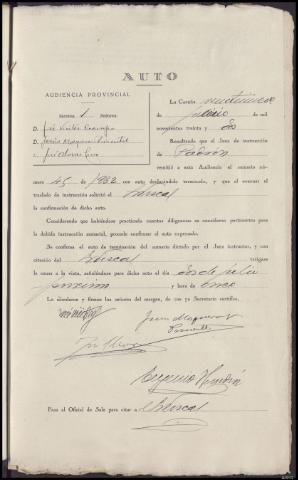 AUTO
AUDIENCIA PROVINCIAL
SECCIÓN 1
Señores:
D.
D.
D.
La Coruña, veintinueve
de junio de mil
novecientos treinta y dos
Resultando que el Juez de instrucción
de Padrón
remitió a esta Audiencia el sumario nú-
mero 45 de 1932 con auto declarándolo terminado, y que al evacuar el
traslado de instrucción solicitó el Fiscal
la confirmación de dicho auto.
Considerando que habiéndose practicado cuantas diligencias se consideran pertinentes para
la debida instrucción sumarial, procede confirmar el auto expresado.
Se confirma el auto de terminación del sumario dictado por el Juez instructor, y con
citación del Fiscal tráigase
la causa a la vista, señalándose para dicho acto el día dos de julio
próximo y hora de once
Lo acordaron y firman los señores del margen, de que yo Secretario certifico.
Eugenio
Pase al Oficial de Sala para citar a Fiscal